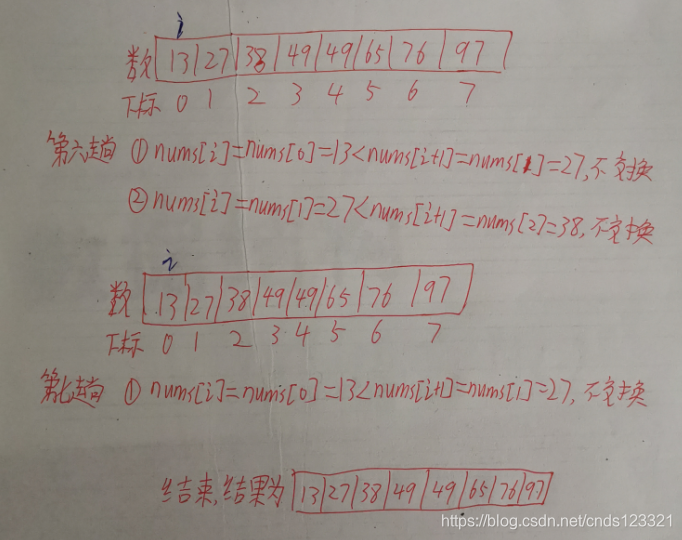 i
数 13 27 38 49 49 65 76 97
下标 0 1 2 3 4 5 6 7
第六趟 ① nums[i]=nums[0]=13<nums[i+1]=nums[1]=27,不交换
② nums[i]=nums[1]=27<nums[i+1]=nums[2]=38,不交换
i
数 13 27 38 49 49 65 76 97
下标 0 1 2 3 4 5 6 7
第七趟 ① nums[i]=nums[0]=13<nums[i+1]=nums[1]=27,不交换
结束,结果为 13 27 38 49 49 65 76 97
https://blog.csdn.net/cnds123321